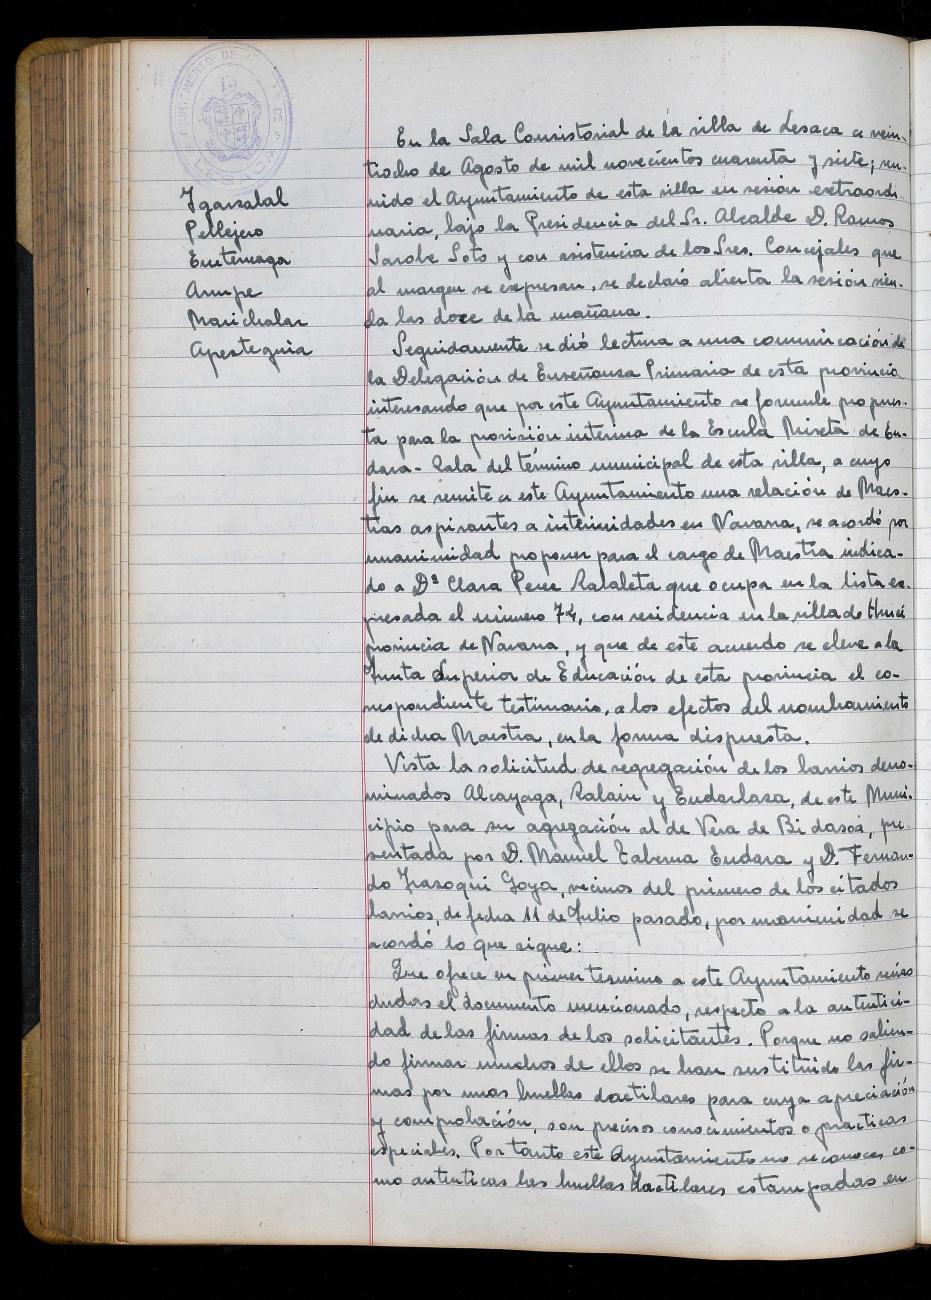 AYUNTAMIENTO DE
LESACA
Igarzabal
Pellejero
Errteneaga
Arrupe
Marichalar
Apesteguia
En la Sala Consistorial de la villa de Lesaca a vein-
tiocho de Agosto de mil novecientos cuarenta y siete; reu-
nido el Ayuntamiento de esta villa en sesión extraordi-
naria, bajo la Presidencia del Sr. Alcalde D. Ramos
Sarobe Soto y con asistencia de los Sres. Concejales que
al margen se expresan, se declaró abierta la sesión sien-
do las doce de la mañana.
Seguidamente se dió lectura a una comunicación de
la Delegación de Enseñanza Primaria de esta provincia
interesando que por este Ayuntamiento se formule propues-
ta para la provisión interina de la Escuela Mixta de En-
dara-Zala del término municipal de esta villa, a cuyo
fin se remite a este Ayuntamiento una relación de Maes-
tras aspirantes a interinidades en Navarra, se acordó por
unanimidad proponer para el cargo de Maestra indica-
do a Dª Clara Pere Zabaleta que ocupa en la lista ex-
presada el número 74, con residencia en la villa de
provincia de Navarra, y que de este acuerdo se eleve a la
Junta Superior de Educación de esta provincia el co-
rrespondiente testimonio, a los efectos del nombramiento
de dicha Maestra, en la forma dispuesta.
Vista la solicitud de segregación de los barrios deno-
minados Alcayaga, Zalain y Endarlaza, de este Muni-
cipio para su agregación al de Vera de Bidasoa, pre-
sentada por D. Manuel Taberna Endara y D. Fernan-
do Irazoqui Goya, vecinos del primero de los citados
barrios, de fecha 11 de Julio pasado, por unanimidad se
acordó lo que sigue:
Que ofrece en primer termino a este Ayuntamiento serias
dudas el documento mencionado, respecto a la autentici-
dad de las firmas de los solicitantes. Porque no sabien-
do firmar muchos de ellos se han sustituido las fir-
mas por unas huellas dactilares para cuya apreciación
y comprobación, son precisos conocimientos o practicas
especiales. Por tanto este Ayuntamiento no reconoce co-
mo autenticas las huellas dactilares estampadas en